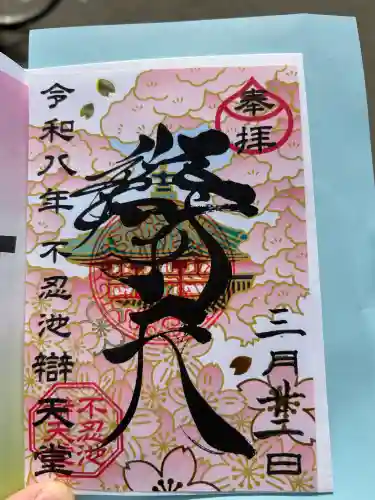 奉拝
三月廿二日
辯才天
令和八年不忍池辯天堂
不忍池